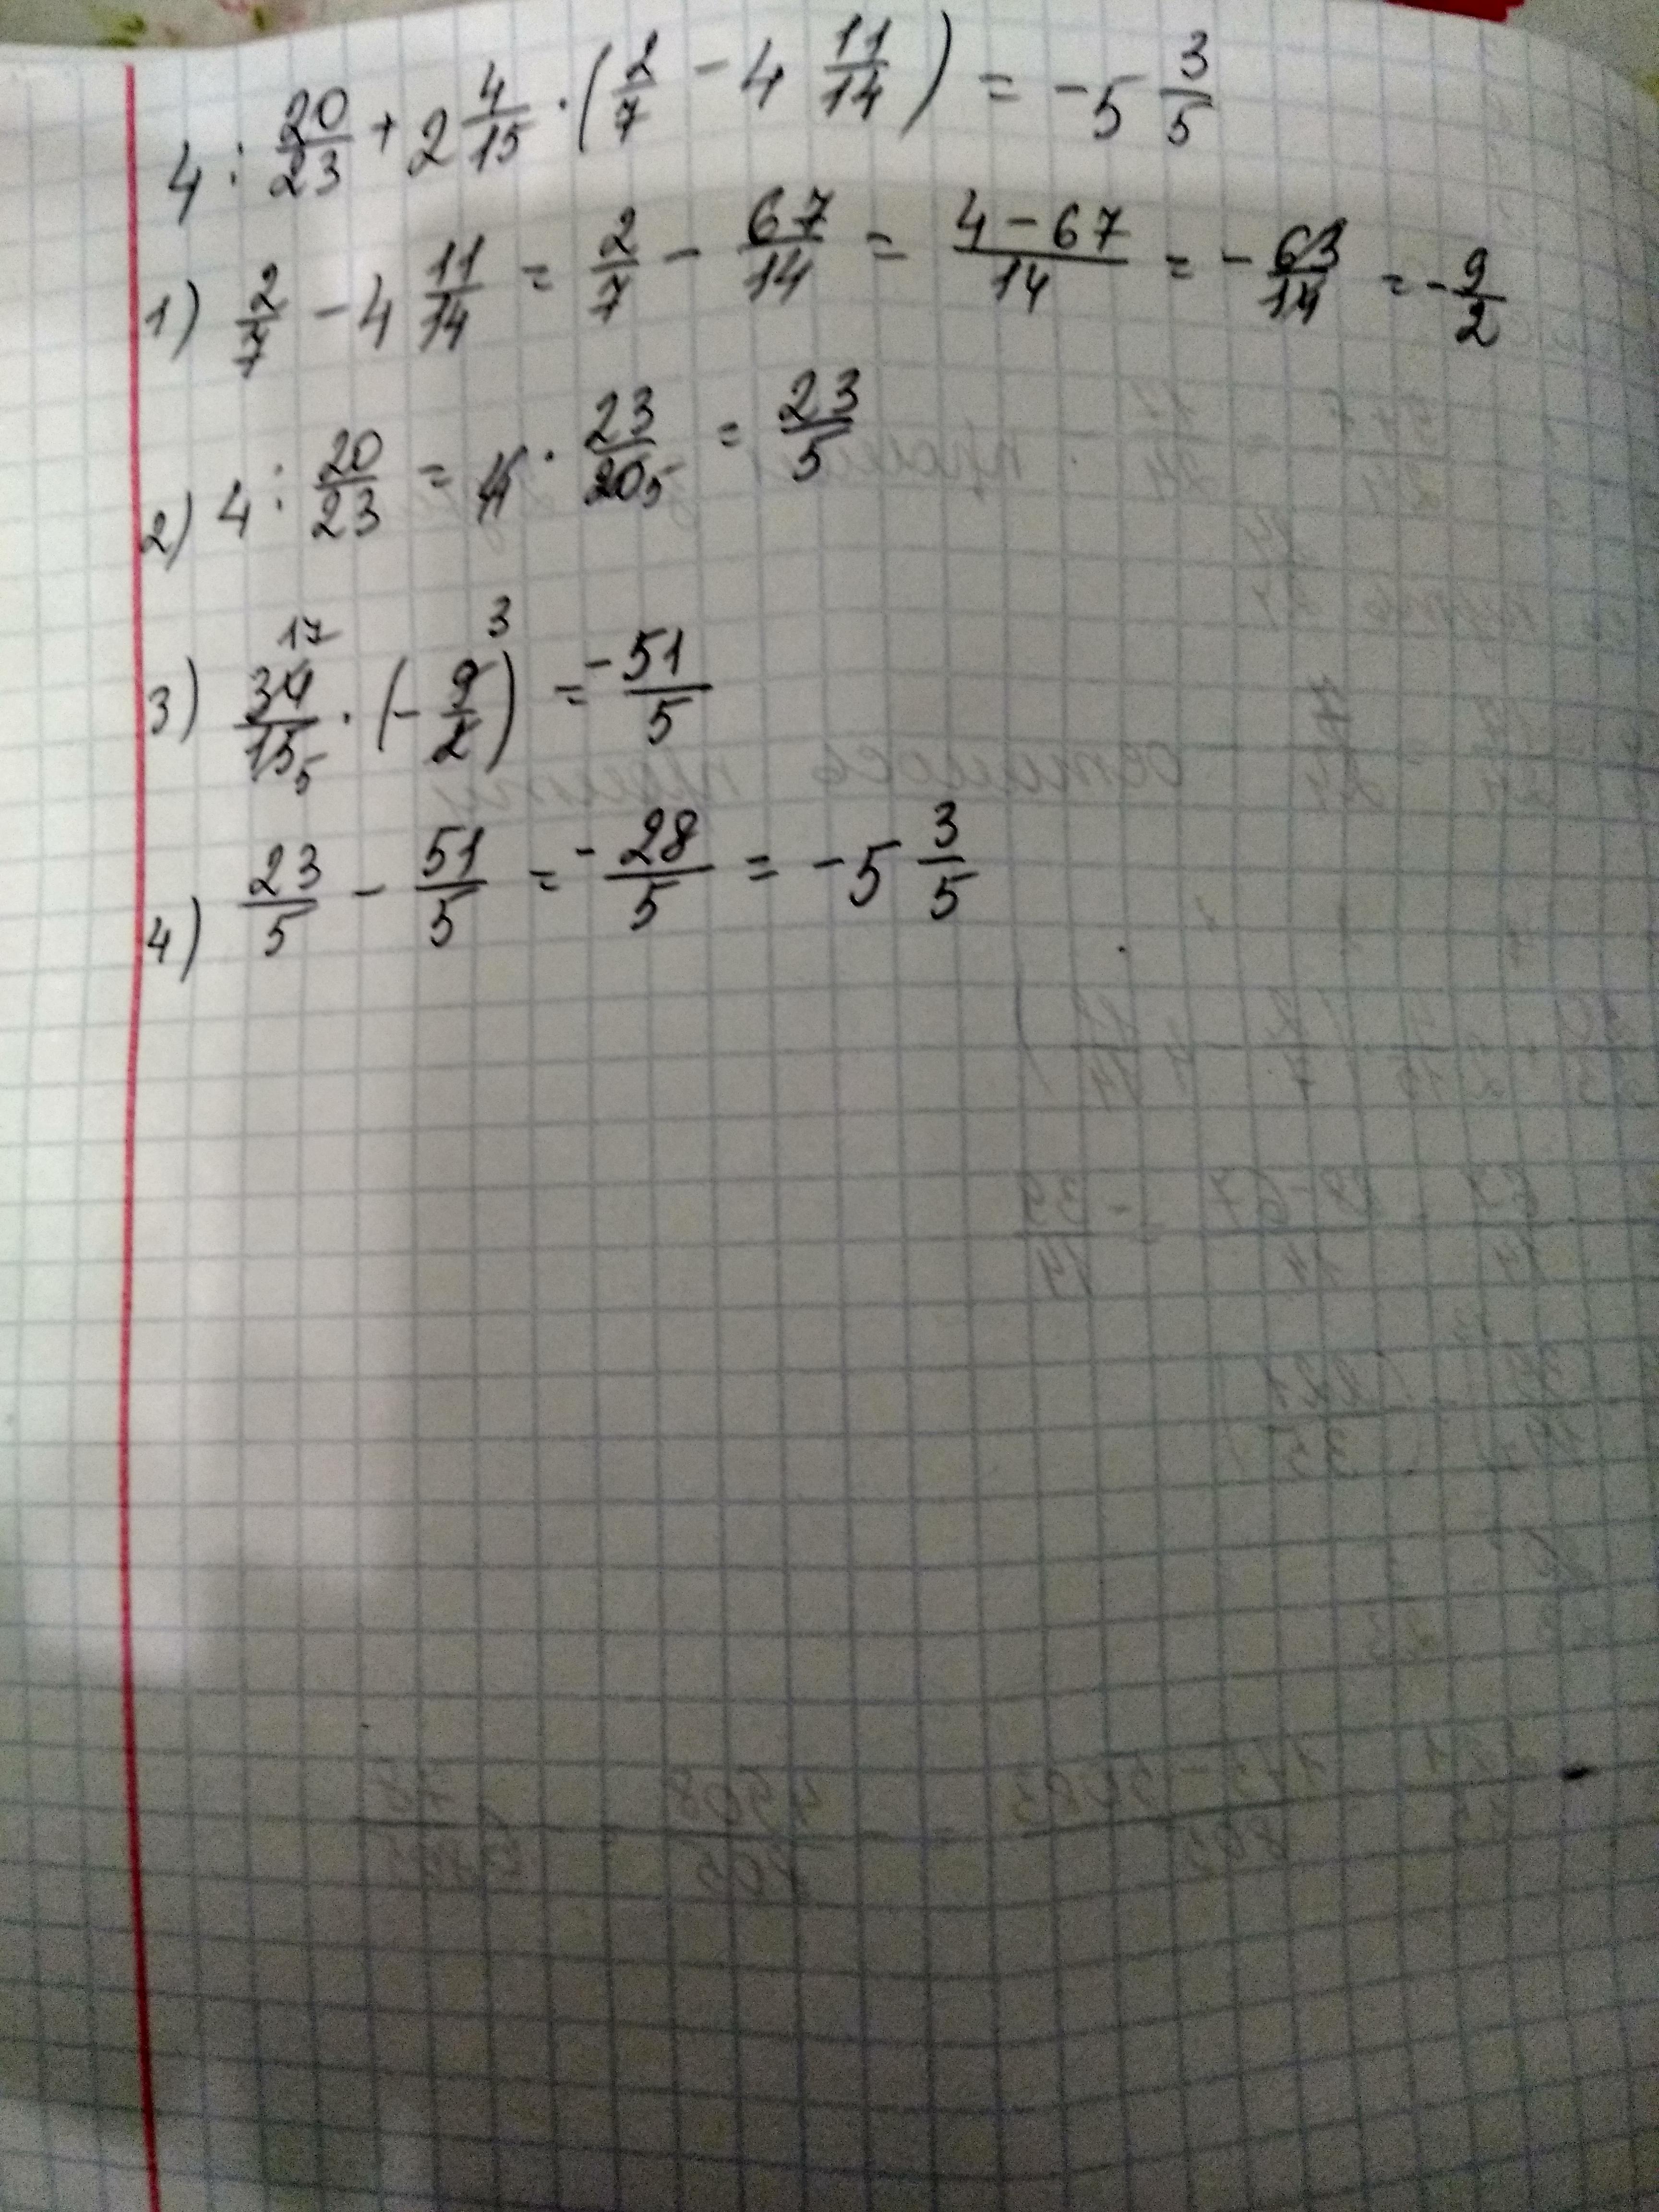 4 : 20/23 + 2 4/15 · (2/7 - 4 11/14) = -5 3/5
1) 2/7 - 4 11/14 = 2/7 - 67/14 = 4-67/14 = - 63/14 = - 9/2
2) 4 : 20/23 = 4 · 23/20 5 = 23/5
3) 17 34/15 5 · (- 9/2) 3 = -51/5
4) 23/5 - 51/5 = -28/5 = -5 3/5